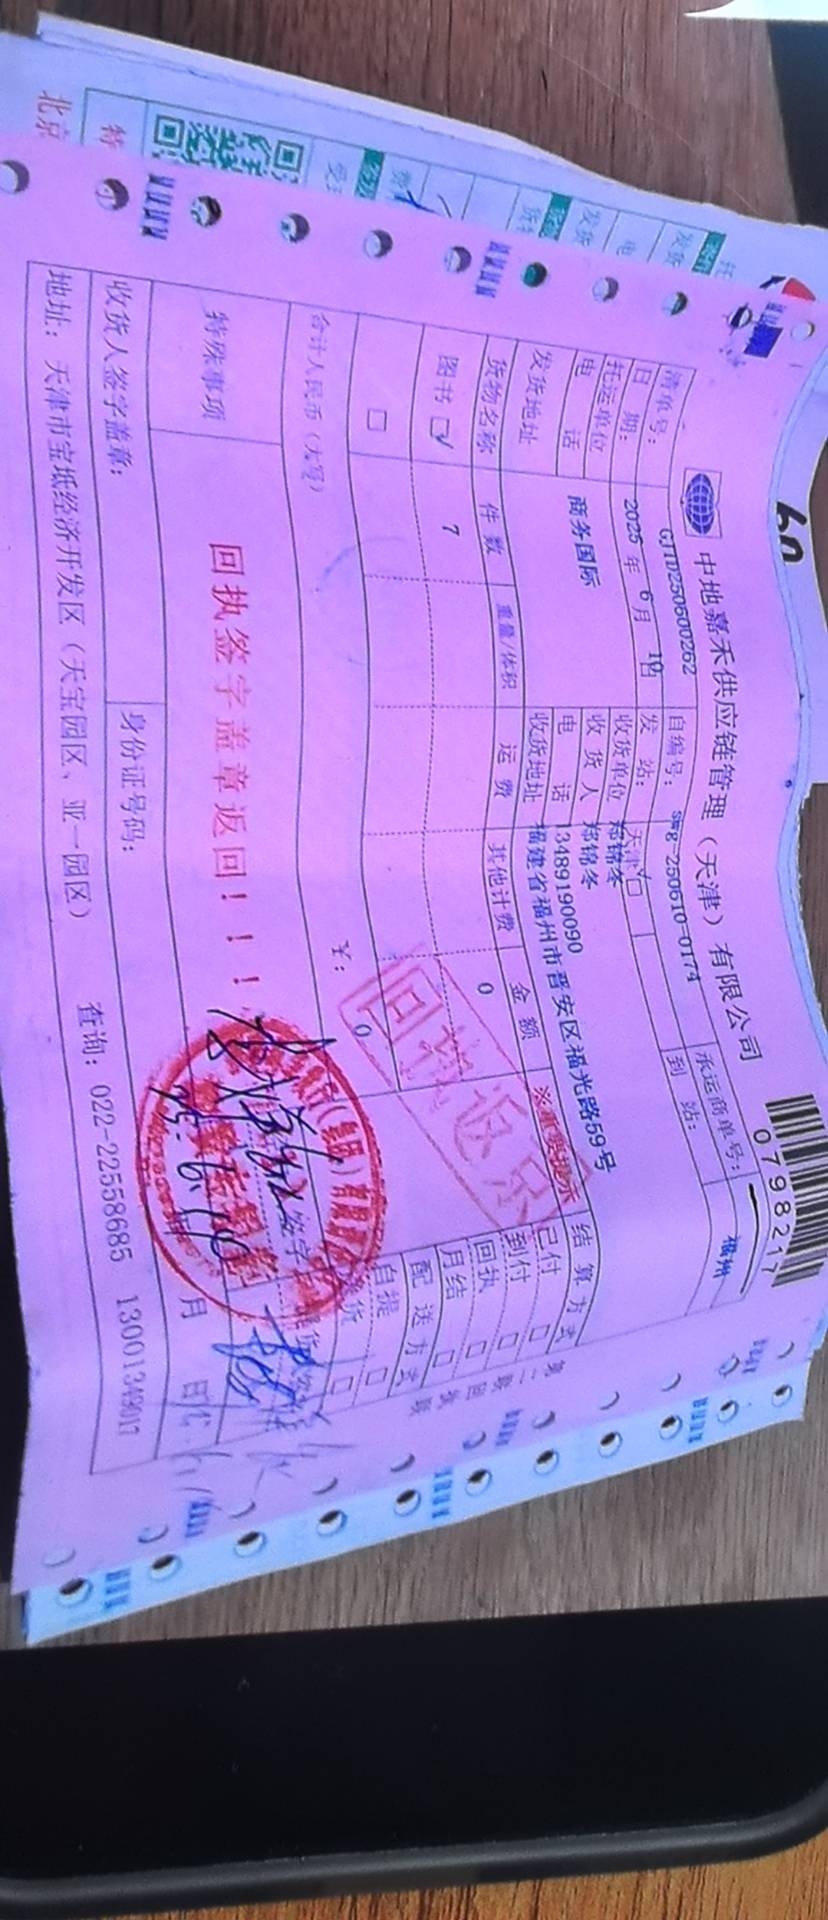 中地嘉禾供应链管理（天津）有限公司
0798217
清单号： GJTD250600262 自编号： swg-250610-0174 承运商单号：
日 期： 2025 年 6 月 10 日 发 站： 天津 到 站： 福州
托运单位 商务国际 收货单位 郑锦冬
收 货 人 郑锦冬
电 话 电 话 13489190090
发货地址 收货地址 福建省福州市晋安区福光路59号
货物名称 件 数 重量/体积 运 费 其他计费 金 额 ※重要提示 结 算 方 式
图书 ☑ 7 0 已付 □
到付 □
回执 □
月结 □
□ 配 送 方 式
自提 □
合计人民币（大写） ￥： 0
回执返京
特殊事项 回执签字盖章返回！！！
收货人签字盖章： 身份证号码： 月 日
地址：天津市宝坻经济开发区（天宝园区、亚一园区） 查询：022-22558685
第二联回执联
北京
特